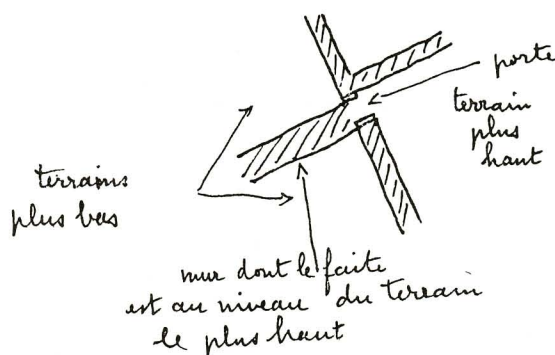 porte
terrain
plus
haut
terrains
plus bas
mur dont le faîte
est au niveau du terrain
le plus haut